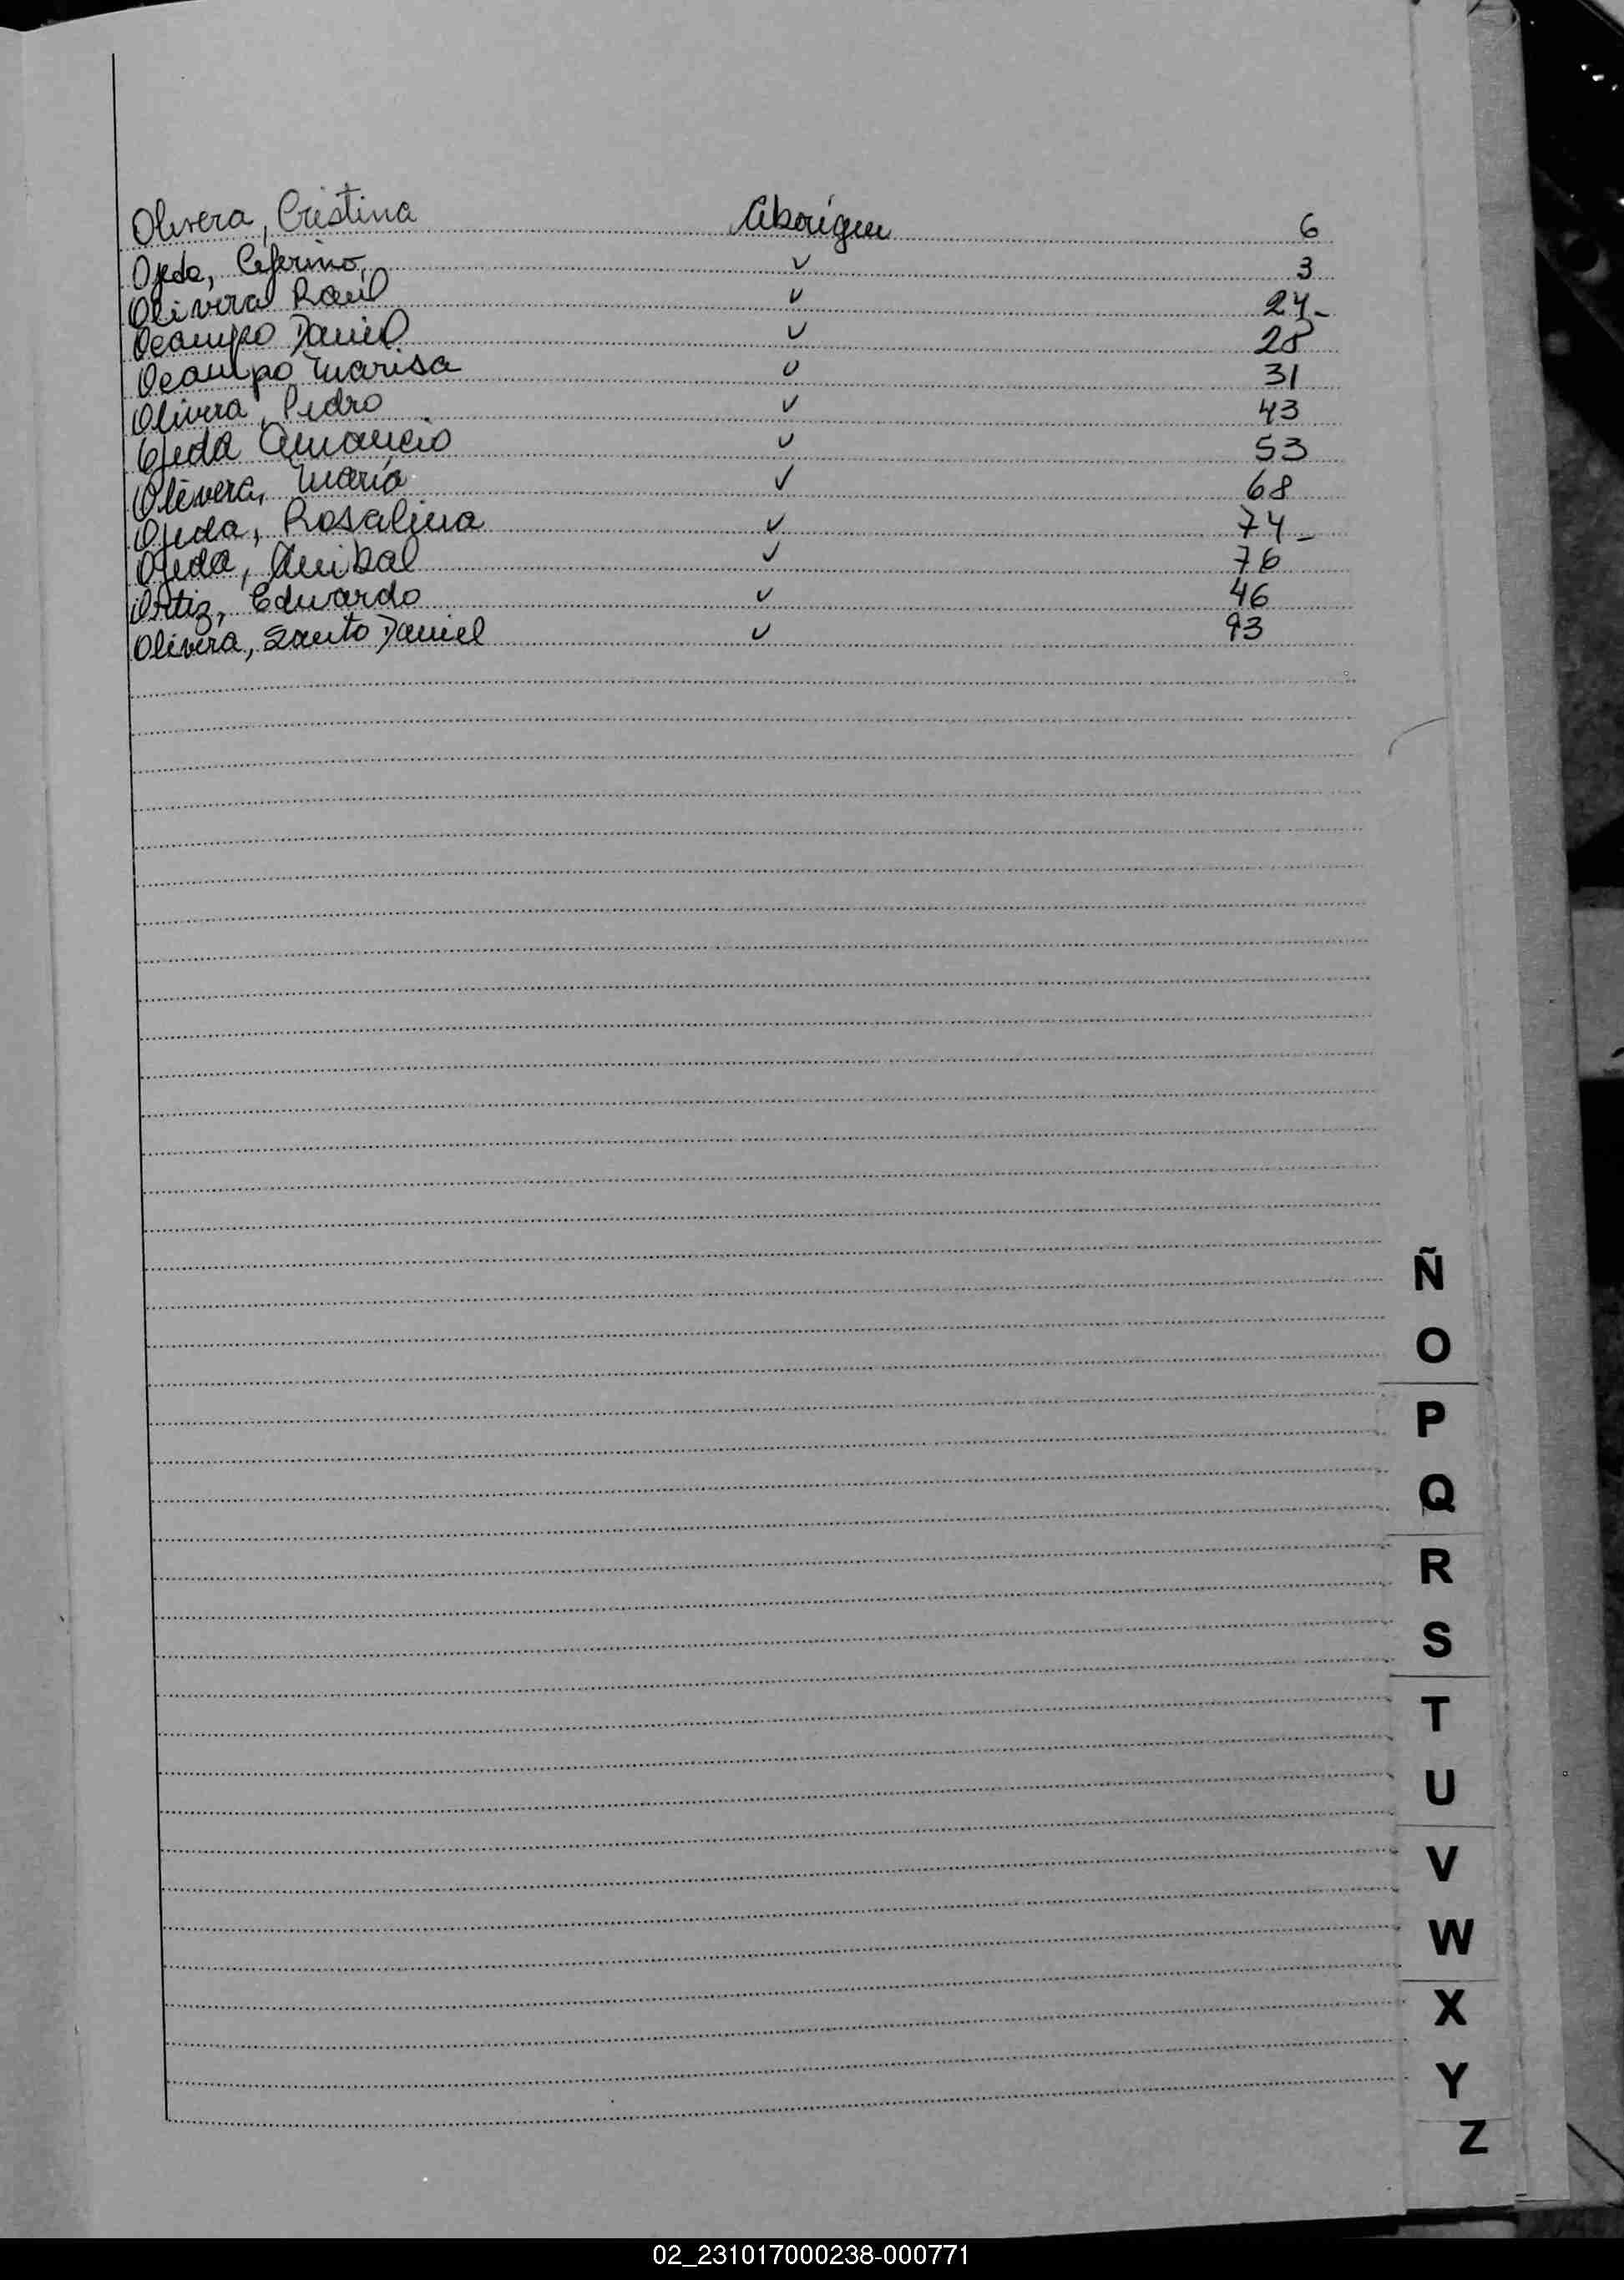 Olivera, Cristina Aborigen 6
Ojeda, Ceferino, v 3
Olivera Raúl v 24-
Ocampo Daniel v 28
Ocampo Marisa v 31
Olivera, Pedro v 43
Ojeda Amancio v 53
Olivera, María v 68
Ojeda, Rosalina v 74-
Ojeda, Anibal v 76
Ortiz, Eduardo v 46
Olivera, Santo Daniel v 93
Ñ
O
P
Q
R
S
T
U
V
W
X
Y
Z
02_231017000238-000771